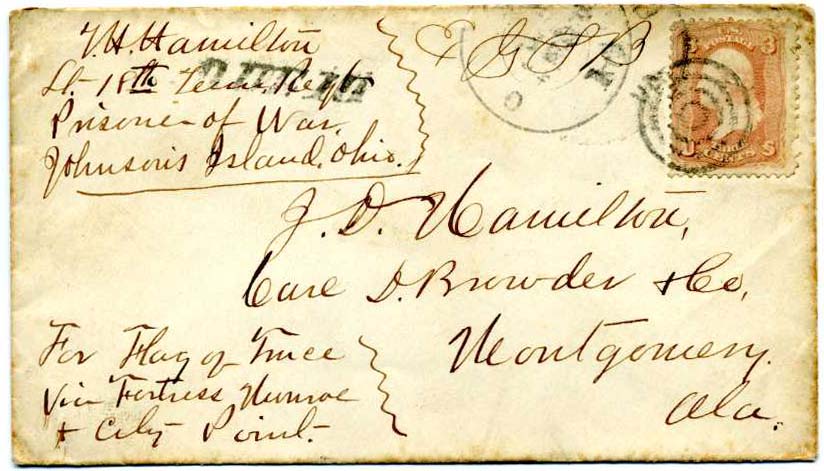 T.H. Hamilton
Lt- 18th Tenn. Regt
Prisoner of War,
Johnson's Island, Ohio.
E G S B
POSTAGE
3
U S
THREE
CENTS
J. D. Hamilton,
Care D. Browder & Co,
Montgomery.
Ala.
For Flag of Truce
Via Fortress Munroe
& City Point-